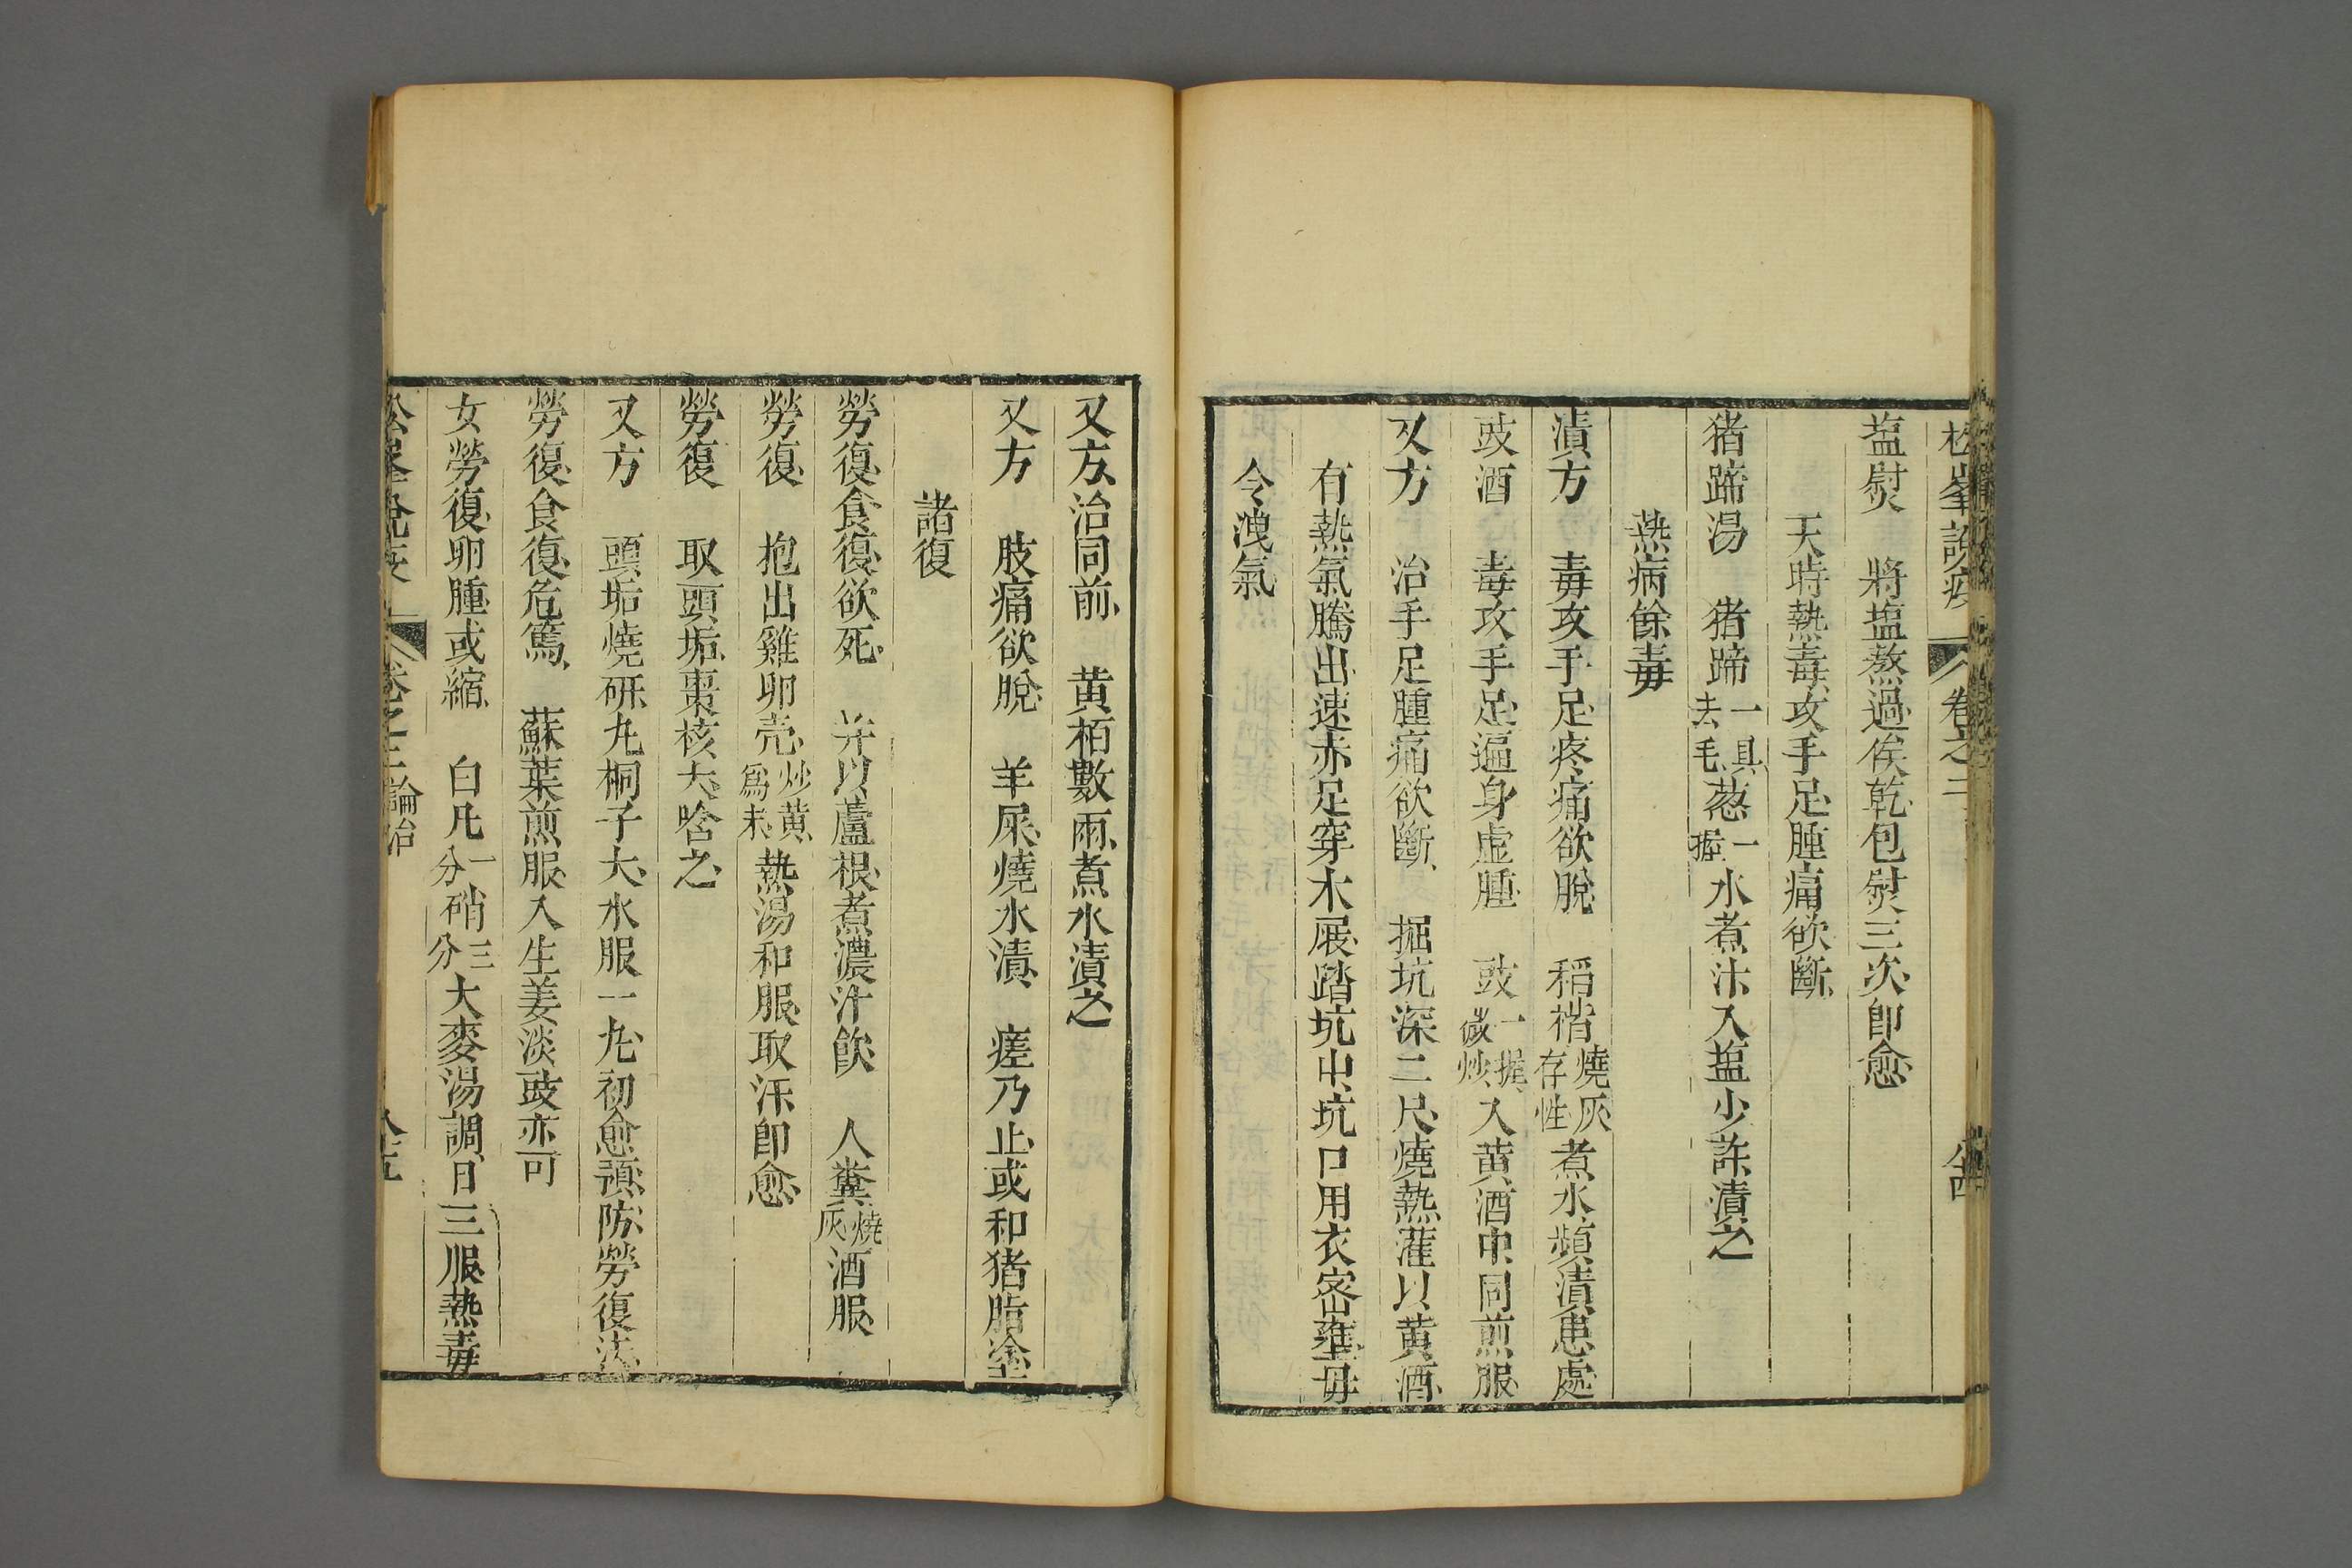 松峯說疫 卷之二 八十四
塩熨 將塩熬過俟乾包熨三次卽愈
天時熱毒攻手足腫痛欲斷
猪蹄湯 猪蹄一具去毛葱一握水煮汁入塩少許漬之
熱病餘毒
漬方 毒攻手足疼痛欲脫 稻稭燒灰存性煮水頻漬患處
豉酒 毒攻手足遍身虛腫 豉一握微炒入黄酒中同煎服
又方 治手足腫痛欲斷 掘坑深二尺燒熱灌以黄酒
有熱氣騰出速赤足穿木屐踏坑中坑口用衣宻壅毋
令洩氣
又方治同前 黄栢數兩煮水漬之
又方 肢痛欲脫 羊屎燒水漬 瘥乃止或和猪脂塗
諸復
勞復食復欲死 并以蘆根煮濃汁飲 人糞燒灰酒服
勞復 抱出雞卵壳炒黄爲末熱湯和服取汗卽愈
勞復 取頭垢棗核大啥之
又方 頭垢燒研丸桐子大水服一丸初愈預防勞復法
勞復食復危篤 蘇葉煎服入生姜淡豉亦可
女勞復卵腫或縮 白凡一分硝三分大麥湯調日三服熱毒
松峯說疫 卷之二論治 八十五